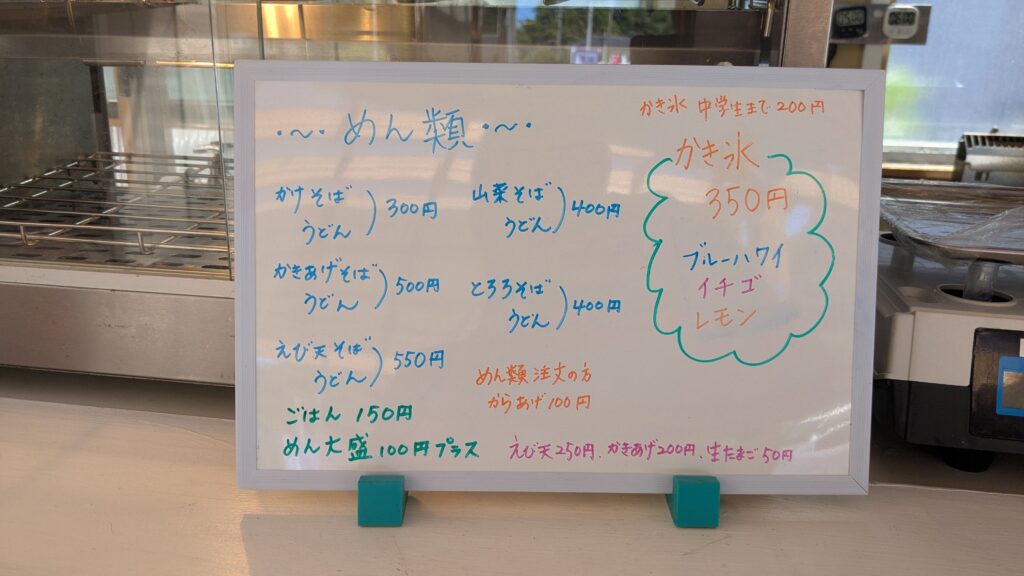 ・〜・めん類・〜・
かけそば
うどん
300円
かきあげそば
うどん
500円
えび天そば
うどん
550円
山菜そば
うどん
400円
とろろそば
うどん
400円
ごはん 150円
めん大盛 100円プラス
めん類注文の方
からあげ100円
えび天250円、かきあげ200円、生たまご50円
かき氷 中学生まで200円
かき氷
350円
ブルーハワイ
イチゴ
レモン